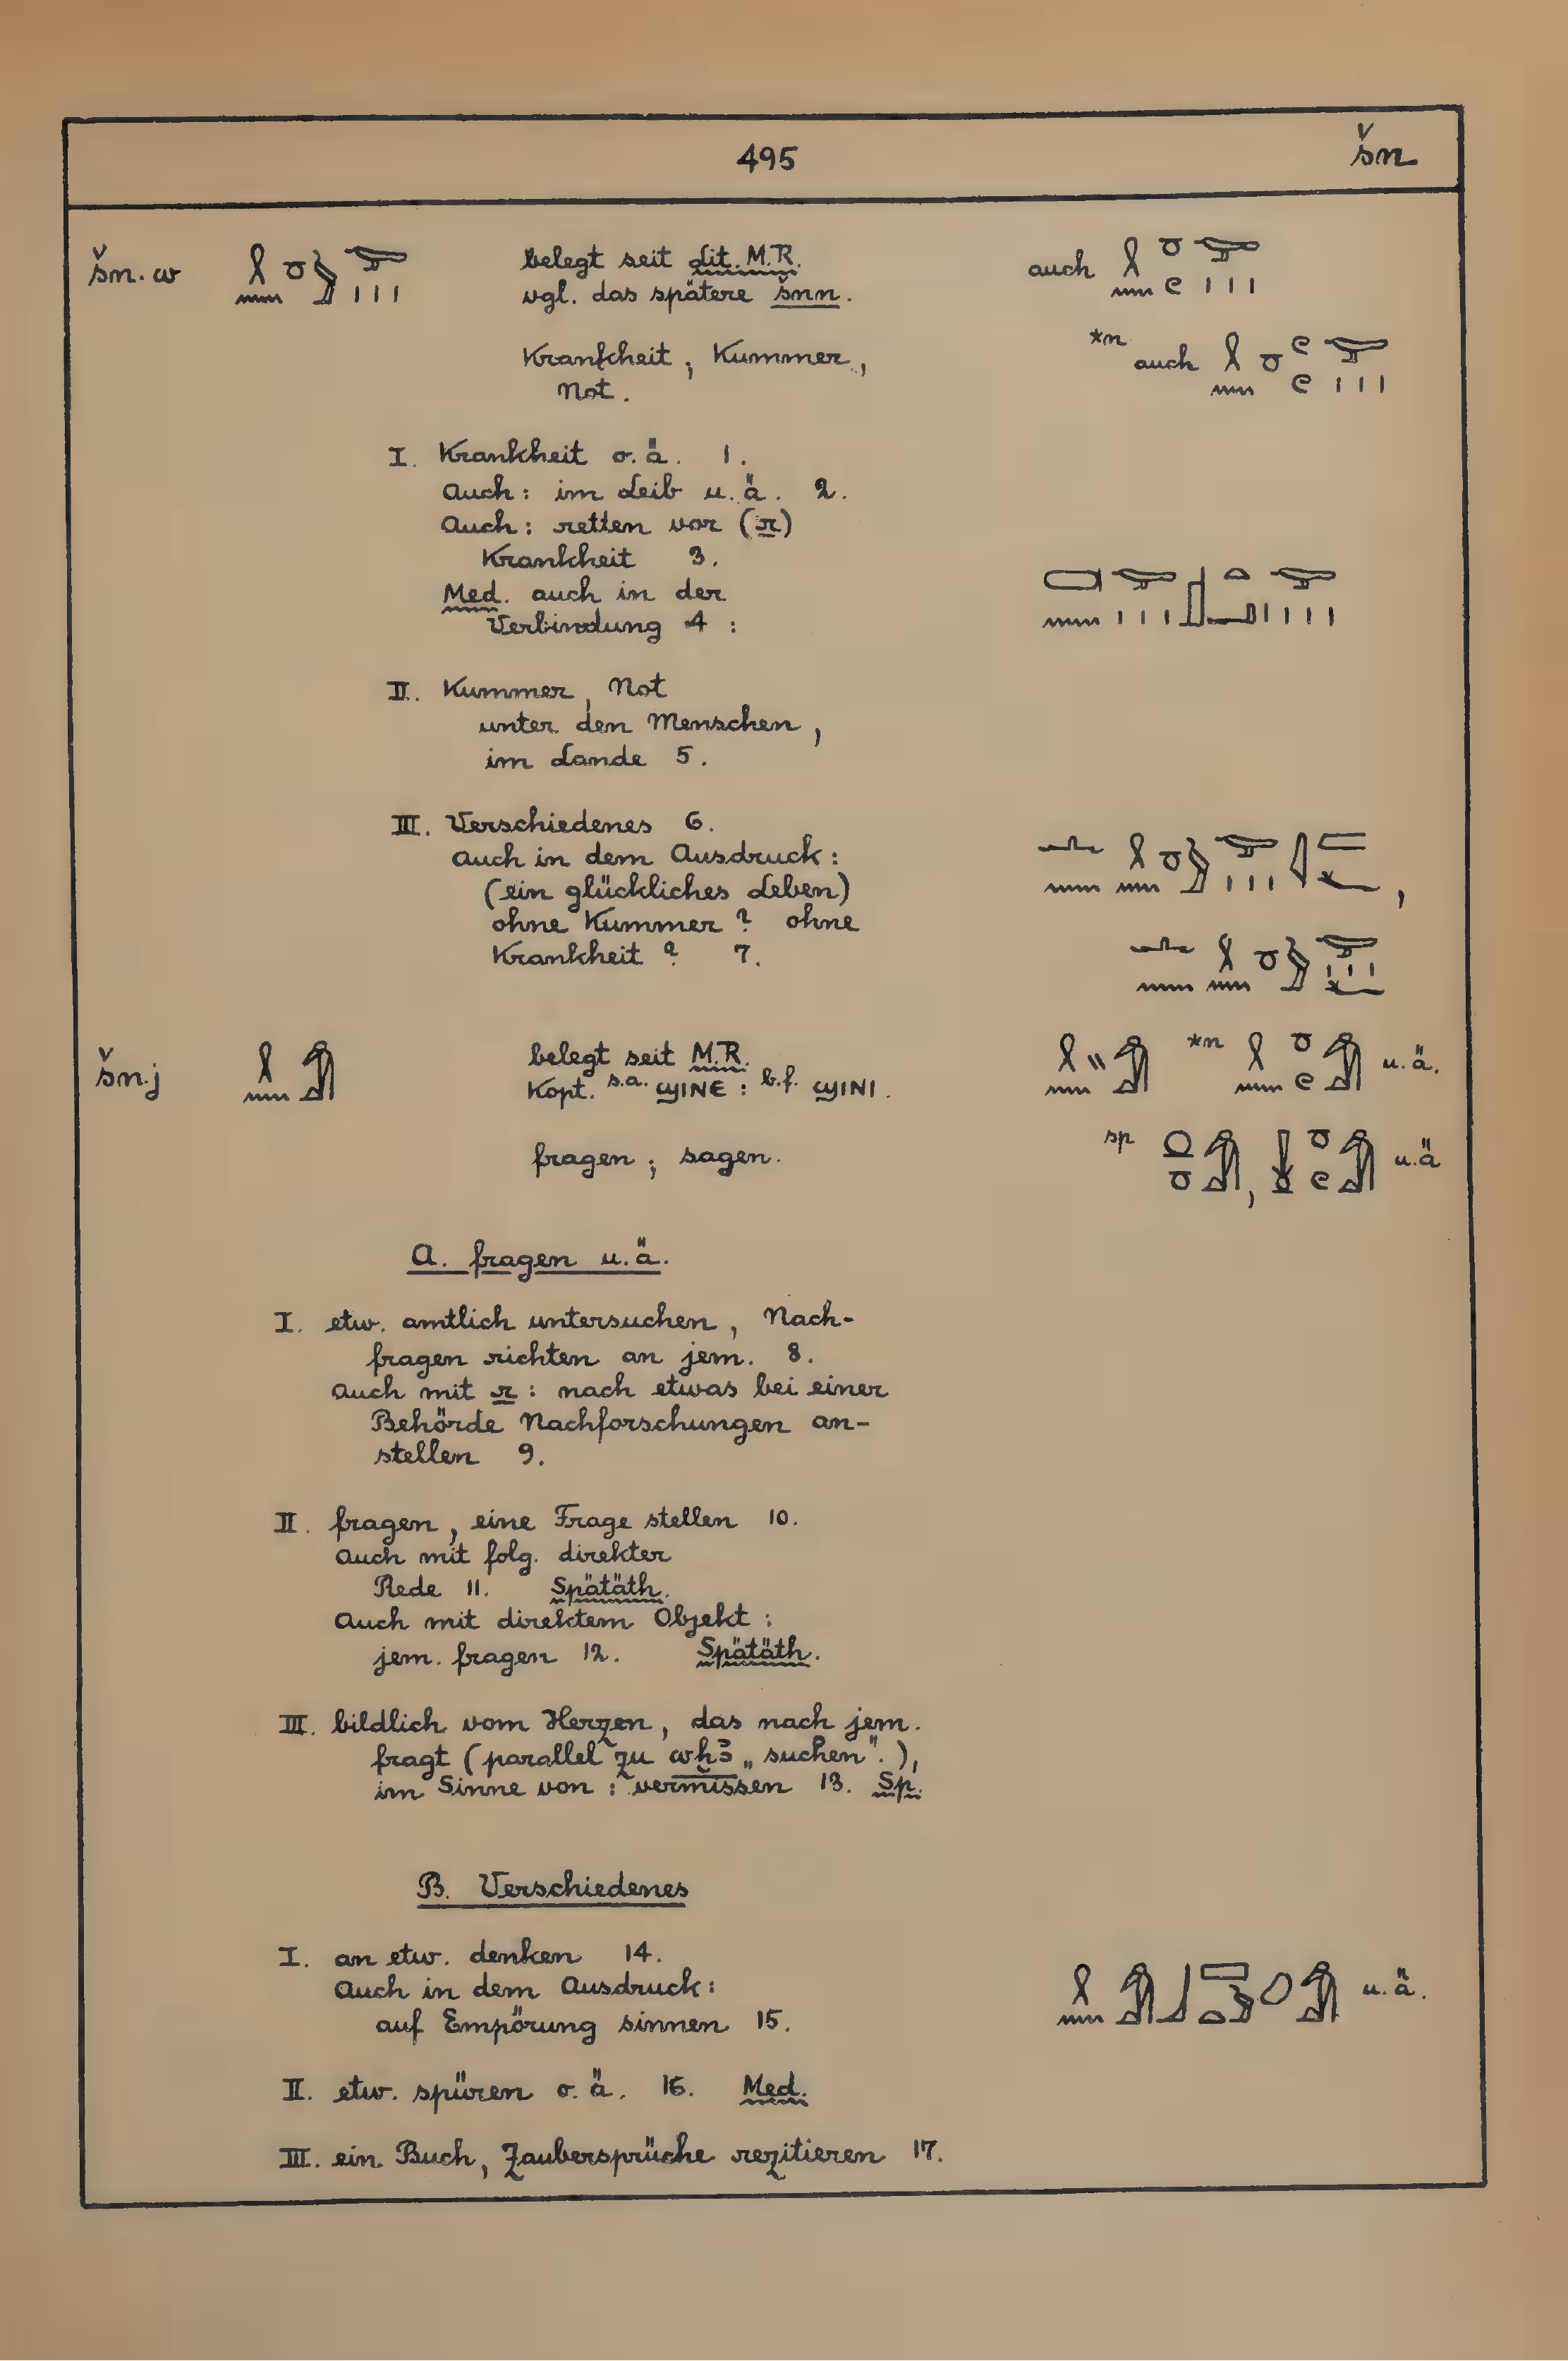 495 šn
šn.w belegt seit Lit. M.R. auch
vgl. das spätere šnn.
*n auch
Krankheit; Kummer,
Not.
I. Krankheit o.ä. 1.
Auch: im Leib u.ä. 2.
Auch: retten vor (r)
Krankheit 3.
Med. auch in der
Verbindung 4 :
II. Kummer, Not
unter den Menschen,
im Lande 5.
III. Verschiedenes 6.
Auch in dem Ausdruck:
(ein glückliches Leben)
ohne Kummer? ohne
Krankheit? 7.
šn.j belegt seit M.R. *n u.ä.
Kopt. s.a. ϣΙΝΕ : b.f. ϣΙΝΙ.
fragen; sagen. sp , u.ä
A. fragen u.ä.
I. etw. amtlich untersuchen, Nach-
fragen richten an jem. 8.
Auch mit r : nach etwas bei einer
Behörde Nachforschungen an-
stellen 9.
II. fragen, eine Frage stellen 10.
Auch mit folg. direkter
Rede 11. Spätäth.
Auch mit direktem Objekt :
jem. fragen 12. Spätäth.
III. bildlich vom Herzen, das nach jem.
fragt (parallel zu wḫꜣ „suchen".),
im Sinne von : vermissen 13. Sp.
B. Verschiedenes
I. an etw. denken 14.
Auch in dem Ausdruck: u.ä.
auf Empörung sinnen 15.
II. etw. spüren o.ä. 16. Med.
III. ein Buch, Zaubersprüche rezitieren 17.